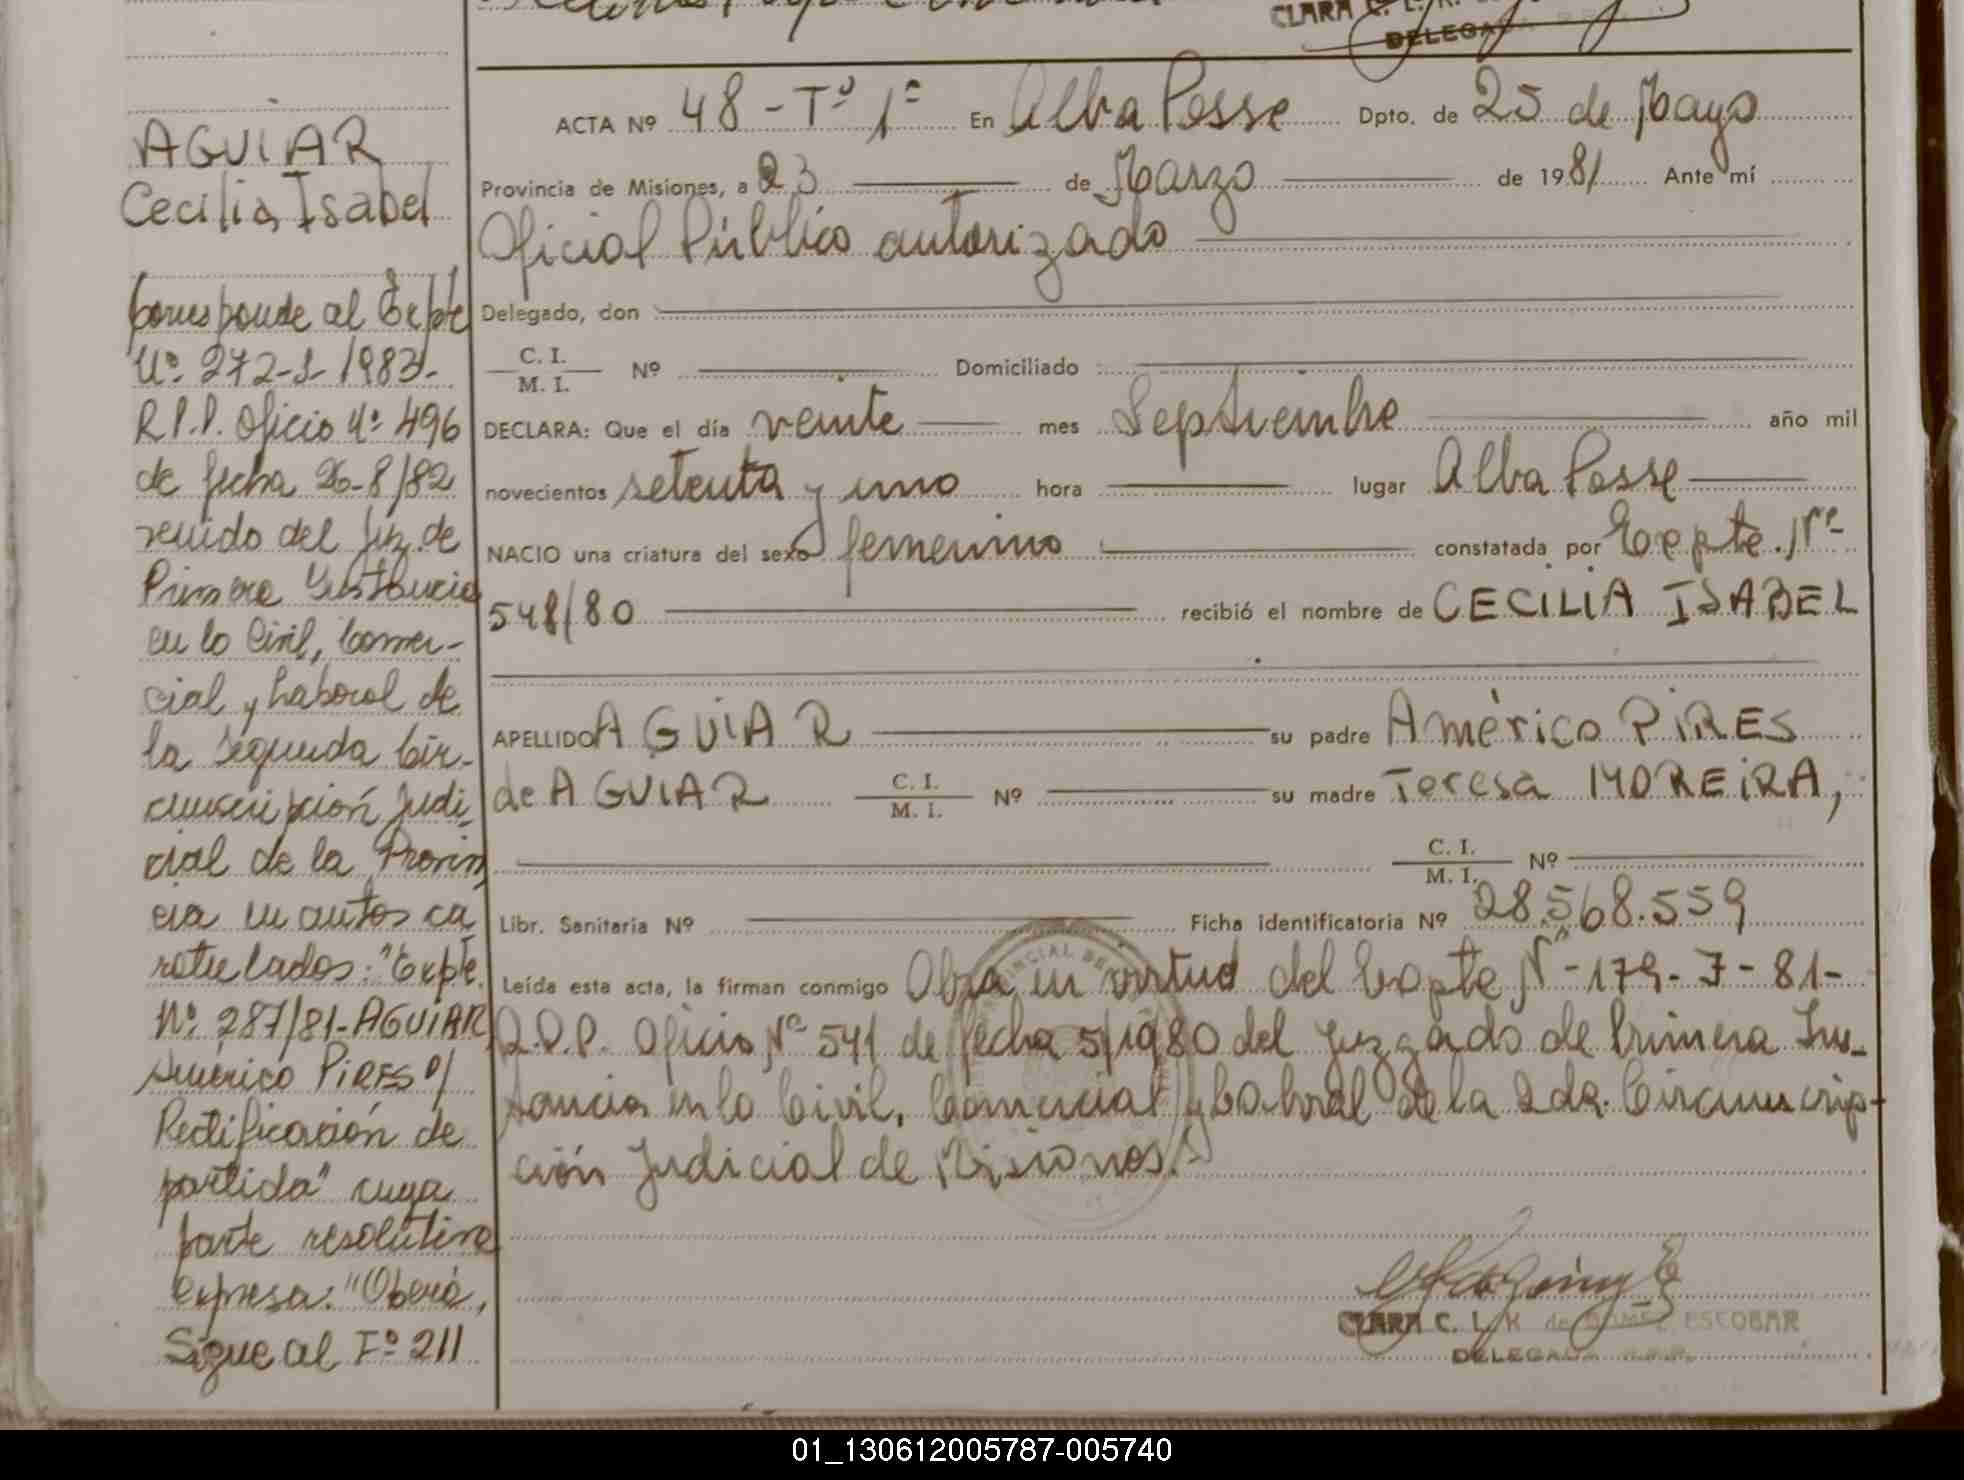 CLARA C. L. K.
DELEGADA
ACTA Nº 48 - Tº 1º En Alba Posse Dpto. de 25 de Mayo
Provincia de Misiones, a 23 de Marzo de 1981 Ante mí
Oficial Público autorizado
Delegado, don
C. I.
M. I. Nº Domiciliado
DECLARA: Que el día veinte mes Septiembre año mil
novecientos setenta y uno hora lugar Alba Posse
NACIO una criatura del sexo femenino constatada por Expte. Nº
548/80 recibió el nombre de CECILIA ISABEL
APELLIDO AGUIAR su padre Américo PIRES
de AGUIAR C. I. M. I. Nº su madre Teresa MOREIRA,
C. I. M. I. Nº
Libr. Sanitaria Nº Ficha identificatoria Nº 28.568.559
Leída esta acta, la firman conmigo Obra en virtud del Expte Nº 179-7-81-
R.P.P. Oficio Nº 541 de fecha 5/1980 del Juzgado de Primera Ins-
tancia en lo Civil, Comercial y Laboral de la 2da. Circunscrip-
ción Judicial de Misiones.
CLARA C. L. K de GOMEZ ESCOBAR
DELEGADA R.P.P.
AGUIAR
Cecilia Isabel
Corresponde al Expte
Nº 272-I-1983-
R.P.P. Oficio Nº 496
de fecha 26-8/82
venido del Juz. de
Primera Instancia
en lo Civil, Comer-
cial y Laboral de
la Segunda Cir-
cunscripción Judi-
cial de la Provin
cia en autos ca
ratulados: "Expte.
Nº 287/81-AGUIAR
Américo PIRES s/
Rectificación de
partida" cuya
parte resolutiva
expresa: "Oberá,
Sigue al Fº 211
01_130612005787-005740